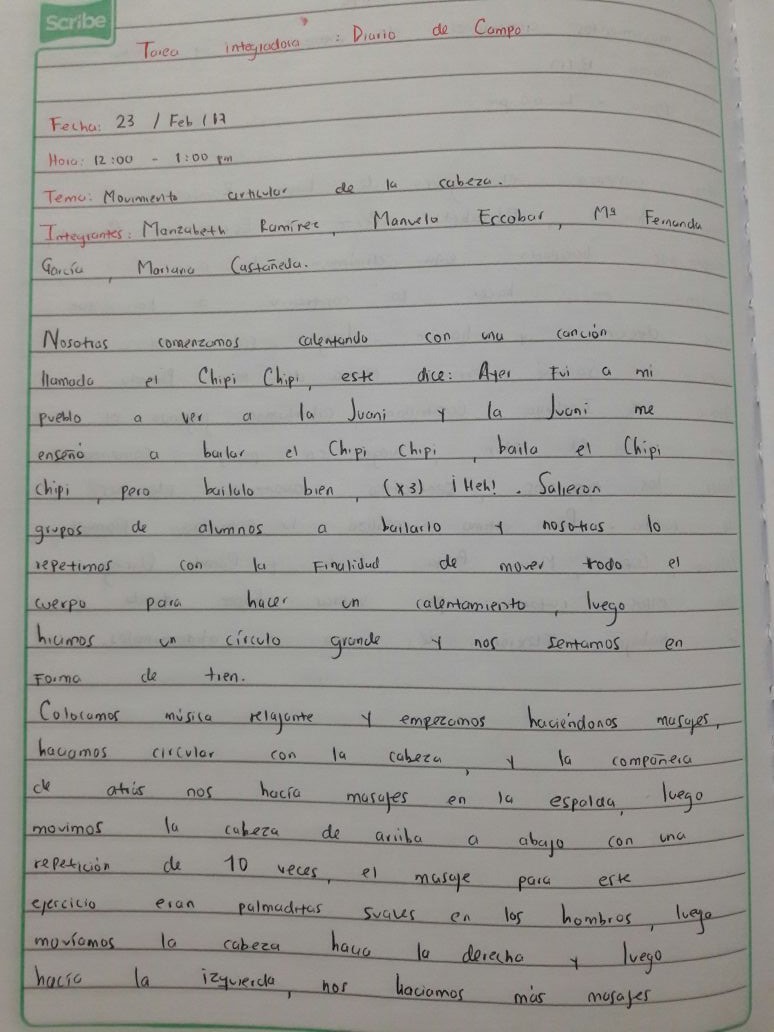 Scribe
Tarea integradora : Diario de Campo.
Fecha: 23 / Feb / 17
Hora: 12:00 - 1:00 pm
Tema: Movimiento articular de la cabeza.
Integrantes: Manzabeth Ramírez, Manuela Escobar, Mª Fernanda
García, Mariana Castañeda.
Nosotras comenzamos calentando con una canción
llamada el Chipi Chipi, este dice: Ayer fui a mi
pueblo a ver a la Juani y la Juani me
enseñó a bailar el Chipi Chipi, baila el Chipi
chipi, pero bailalo bien, (x3) ¡Heh!. Salieron
grupos de alumnos a bailarlo y nosotras lo
repetimos con la Finalidad de mover todo el
cuerpo para hacer un calentamiento, luego
hicimos un círculo grande y nos sentamos en
Forma de tren.
Colocamos música relajante y empezamos haciéndonos masajes,
hacíamos circular con la cabeza, y la compañera
de atrás nos hacía masajes en la espalda, luego
movimos la cabeza de arriba a abajo con una
repetición de 10 veces, el masaje para este
ejercicio eran palmaditas suaves en los hombros, luego
movíamos la cabeza hacia la derecha y luego
hacía la izquierda, nos haciamos más masajes